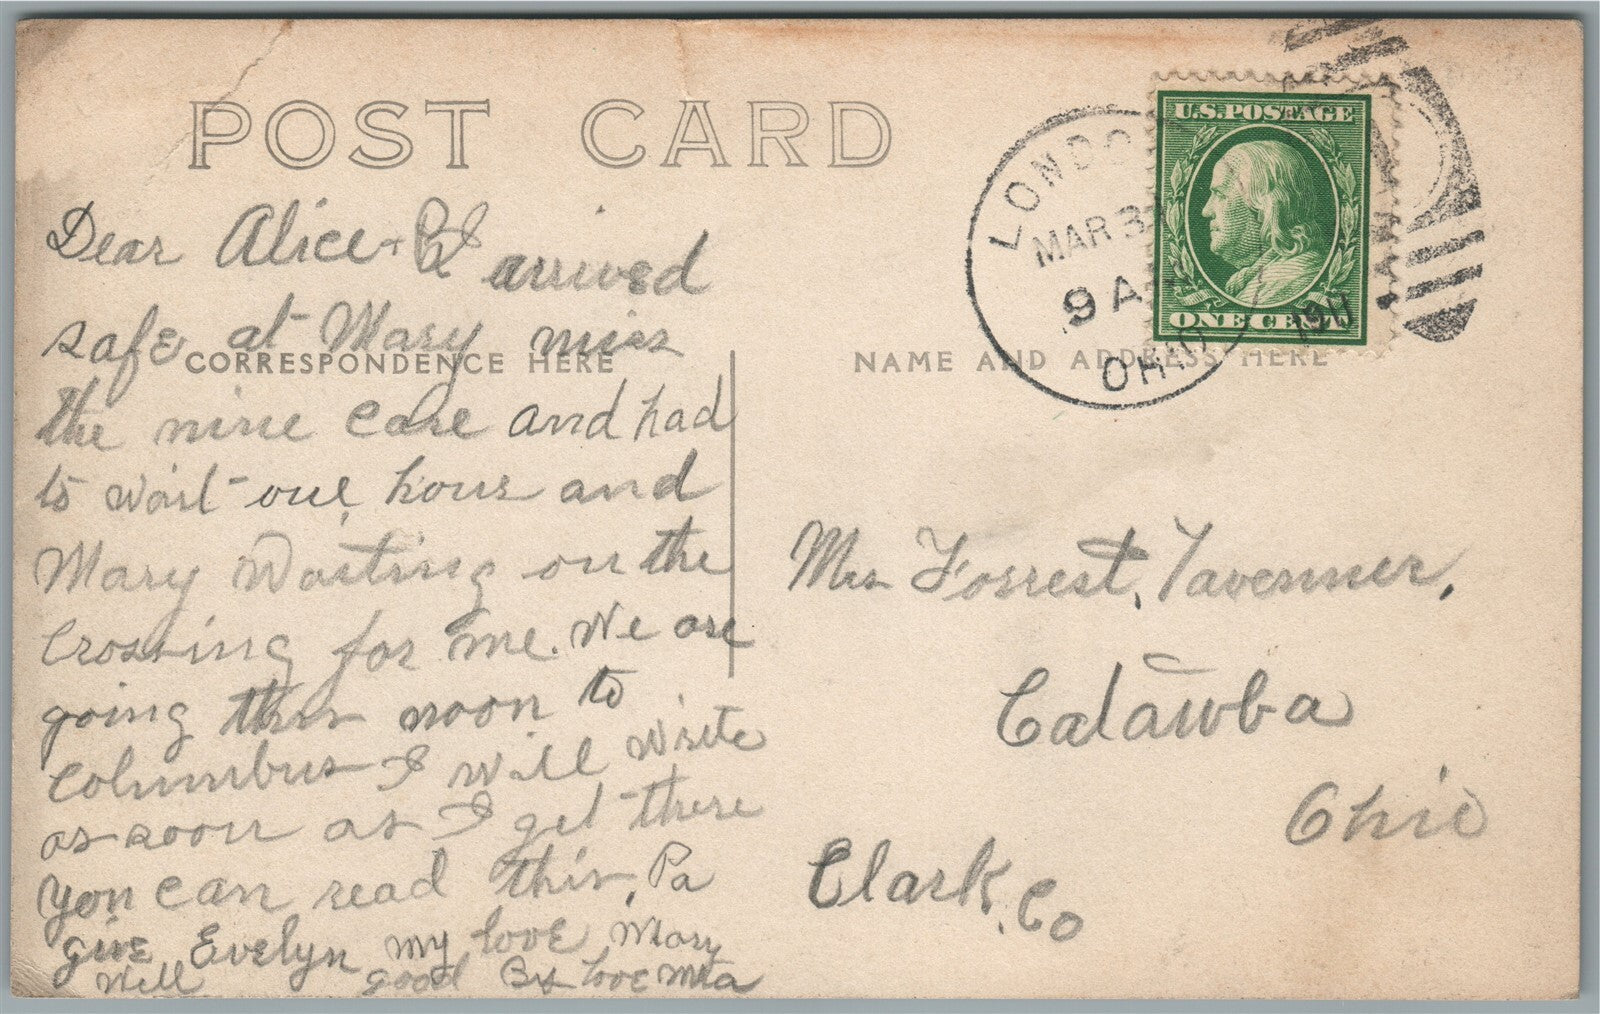 POST CARD
Dear Alice + I arrived
safe at Mary miss
CORRESPONDENCE HERE
the nine care and had
to wait one hour and
Mary Waiting on the
Crossing for me. We are
going this noon to
Columbus I will write
as soon as I get there
you can read this, Pa
give Evelyn my love Mary
Well good By love
U.S. POSTAGE
ONE CENT
LONDO
MAR 3
9 A
OHIO
1911
NAME AND ADDRESS HERE
Mrs Forrest, Tavenner,
Catawba
Ohio
Clark. Co